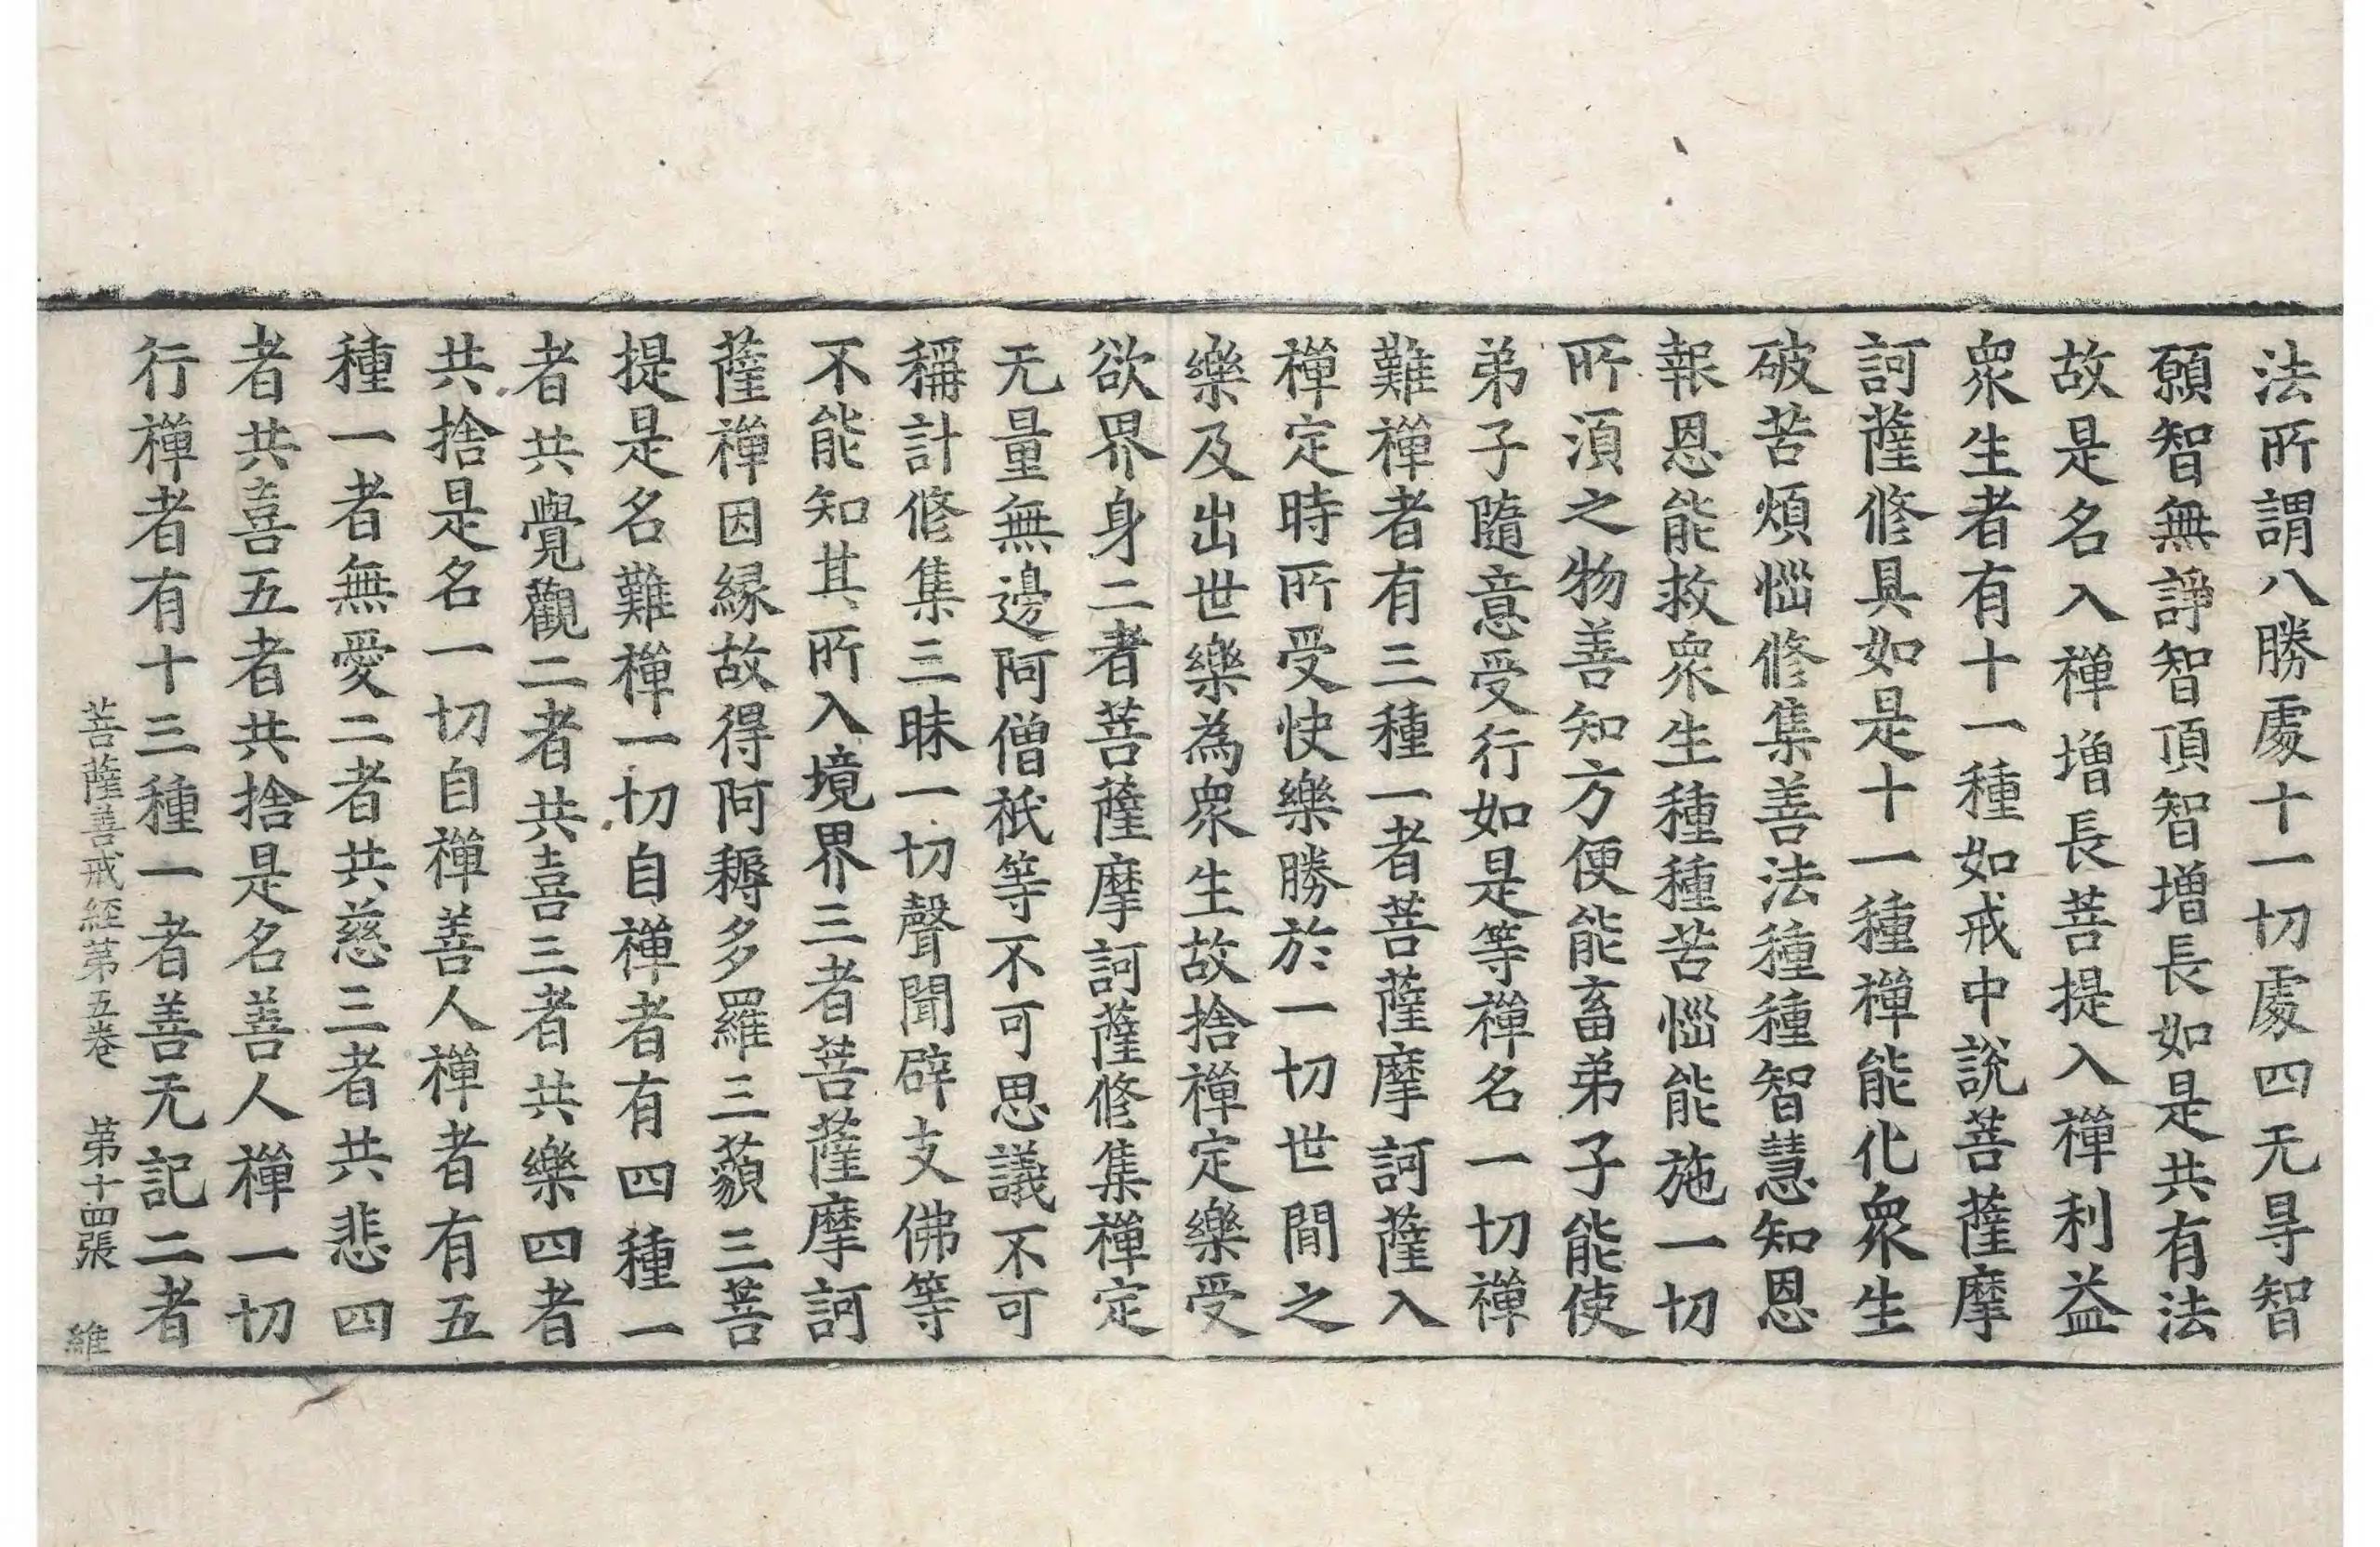 法所謂八勝處十一切處四无㝵智
願智無諍智頂智增長如是共有法
故是名入禪增長菩提入禪利益
衆生者有十一種如戒中說菩薩摩
訶薩修具如是十一種禪能化衆生
破苦煩惱修集善法種種智慧知恩
報恩能救衆生種種苦惱能施一切
所須之物善知方便能畜弟子能使
弟子隨意受行如是等禪名一切禪
難禪者有三種一者菩薩摩訶薩入
禪定時所受快樂勝於一切世間之
樂及出世樂為衆生故捨禪定樂受
欲界身二者菩薩摩訶薩修集禪定
无量無邊阿僧祇等不可思議不可
稱計修集三昧一切聲聞辟支佛等
不能知其所入境界三者菩薩摩訶
薩禪因緣故得阿耨多羅三藐三菩
提是名難禪一切自禪者有四種一
者共覺觀二者共喜三者共樂四者
共捨是名一切自禪善人禪者有五
種一者無愛二者共慈三者共悲四
者共喜五者共捨是名善人禪一切
行禪者有十三種一者善无記二者
菩薩善戒經苐五卷 苐十四張 維